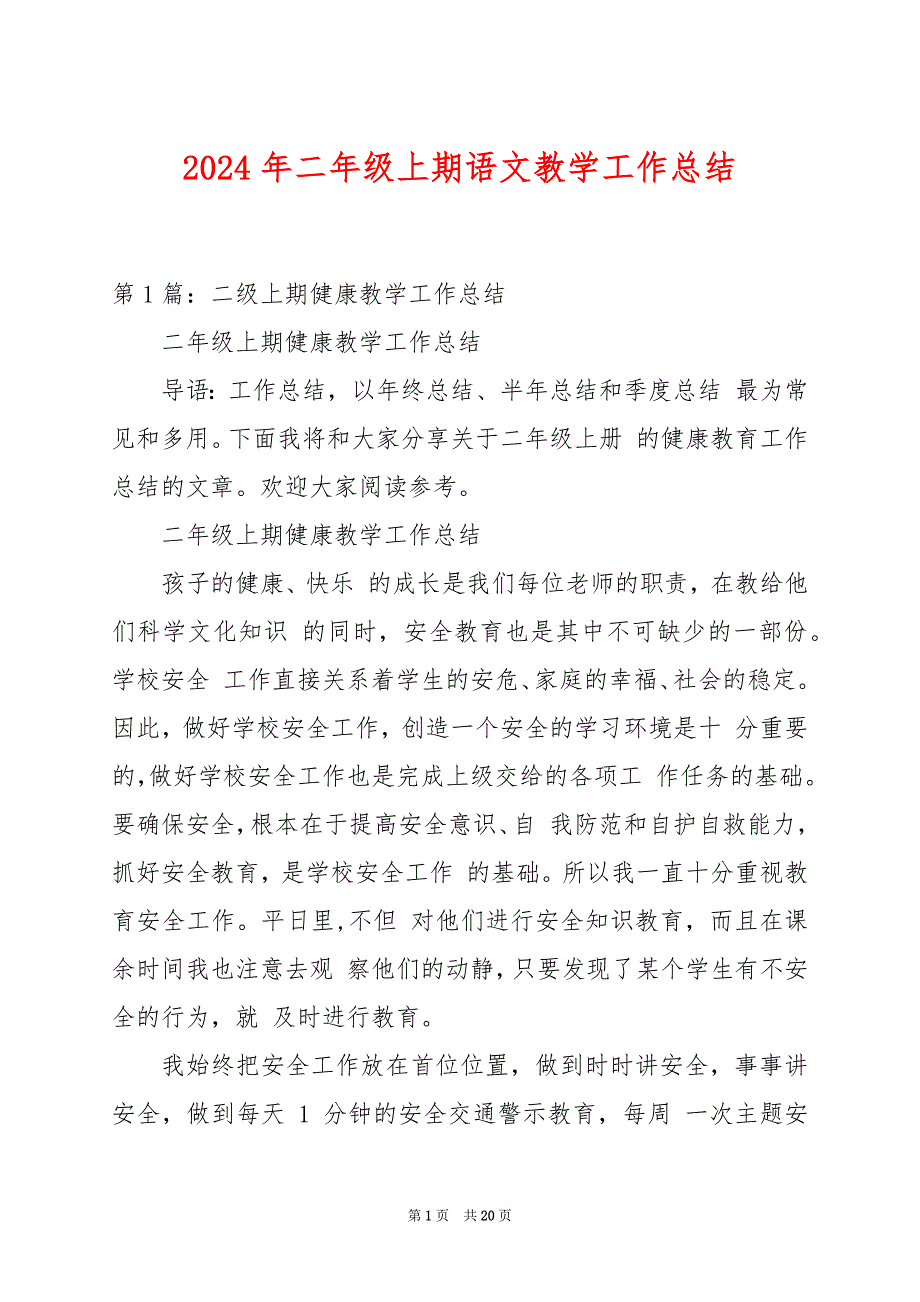 2024年二年级上期语文教学工作总结
第1篇：二级上期健康教学工作总结
二年级上期健康教学工作总结
导语：工作总结，以年终总结、半年总结和季度总结 最为常
见和多用。下面我将和大家分享关于二年级上册 的健康教育工作
总结的文章。欢迎大家阅读参考。
二年级上期健康教学工作总结
孩子的健康、快乐 的成长是我们每位老师的职责，在教给他
们科学文化知识 的同时，安全教育也是其中不可缺少的一部份。
学校安全 工作直接关系着学生的安危、家庭的幸福、社会的稳定。
因此，做好学校安全工作，创造一个安全的学习环境是十 分重要
的，做好学校安全工作也是完成上级交给的各项工 作任务的基础。
要确保安全，根本在于提高安全意识、自 我防范和自护自救能力，
抓好安全教育，是学校安全工作 的基础。所以我一直十分重视教
育安全工作。平日里，不但 对他们进行安全知识教育，而且在课
余时间我也注意去观 察他们的动静，只要发现了某个学生有不安
全的行为，就 及时进行教育。
我始终把安全工作放在首位位置，做到时时讲安全，事事讲
安全，做到每天 1 分钟的安全交通警示教育，每周 一次主题安
第1页 共20页